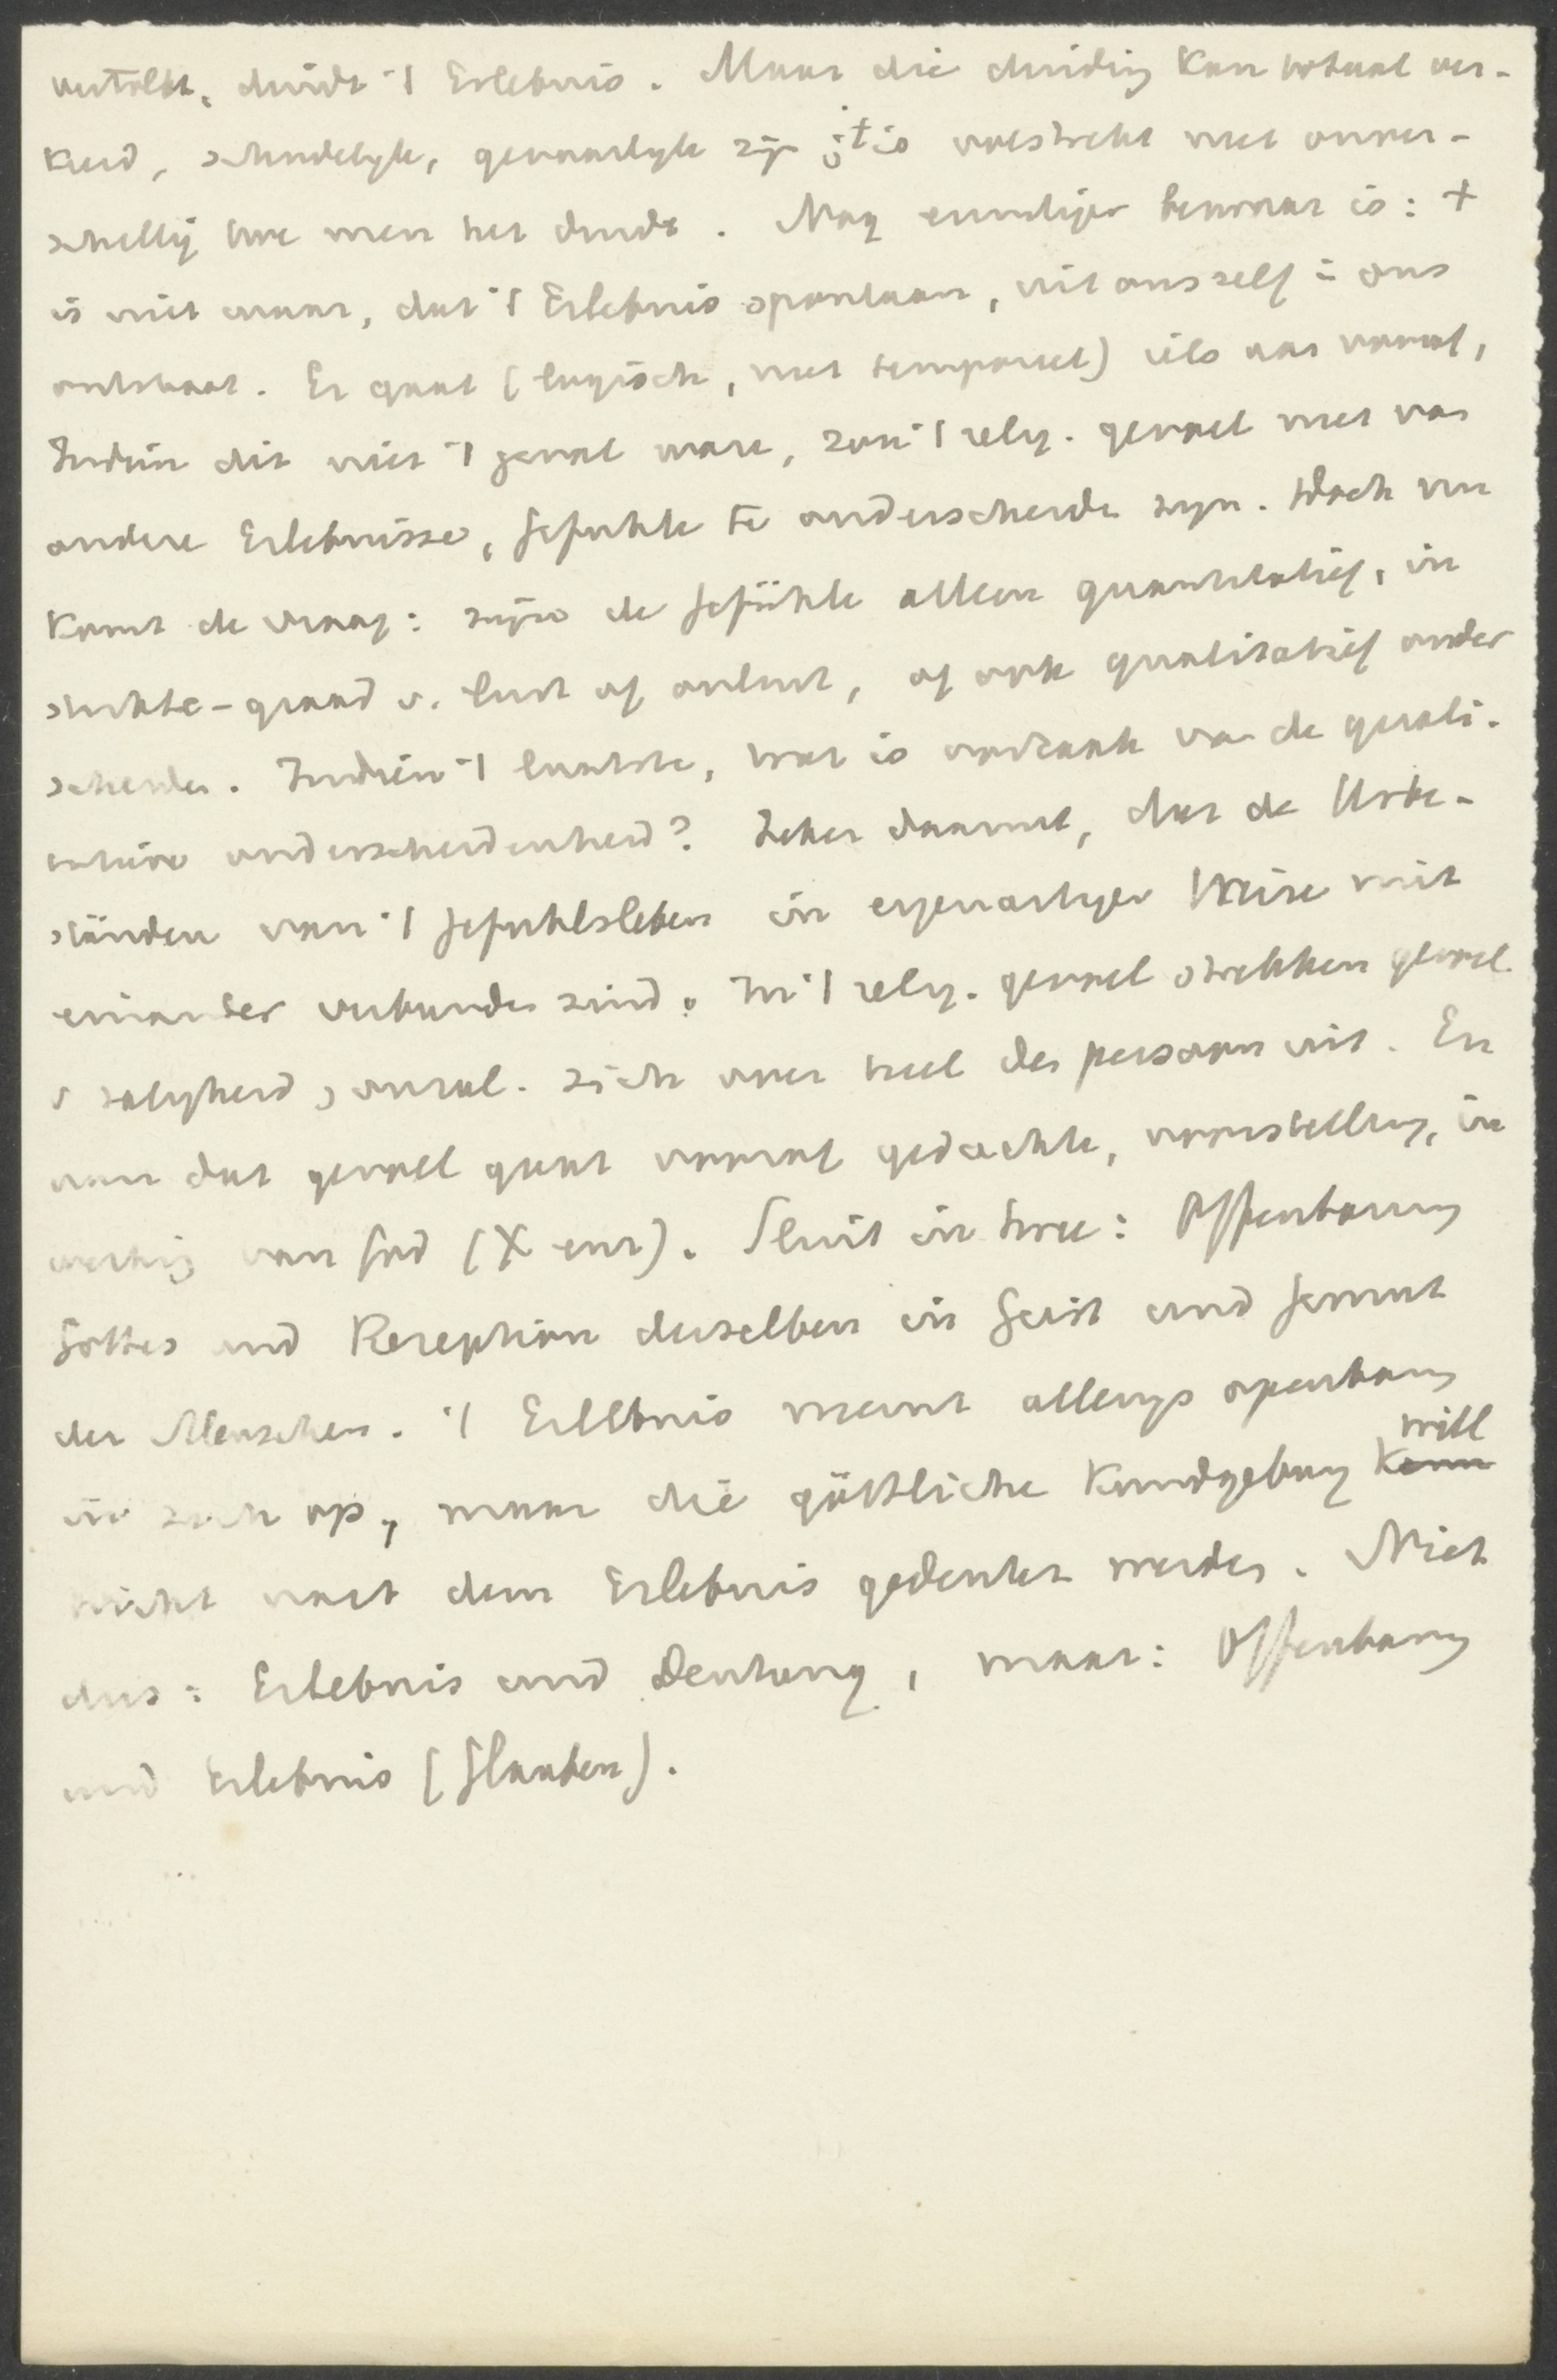 vertolkt, duidt 't Erlebnis. Maar die duiding kan totaal ver-
keerd, schadelijk, gevaarlijk zijn; 't is volstrekt niet onver-
schillig hoe men het duidt. Nog ernstiger bezwaar is: 't
is niet waar, dat 't Erlebnis spontaan, uit onszelf in ons
ontstaat. Er gaat (logisch, niet temporeel) iets aan vooraf,
Indien dit niet 't geval ware, zou 't relig. gevoel niet van
andere Erlebnisse, Gefühle te onderscheiden zijn. Doch nu
komt de vraag: zijn de Gefühle alleen quantitatief, in
sterkte-graad v. lust of onlust, of ook qualitatief onder
scheiden. Indien 't laatste, wat is oorzaak van de quali-
tatieve onderscheidenheid? Zeker daarmit, dat de Urbe-
ständen van 't Gefühlsleben in eigenartiger Weise mit
einander verbunden sind. In 't relig. gevoel strekken gevoel
v zaligheid, onzal. zich over heel den persoon uit. En
aan dat gevoel gaat vooraf gedachte, voorstelling, in
werking van God (X enz). Sluit in twee: Offenbarung
Gottes und Rezeption derselben in Geist und Gemüt
der Menschen. 't Erlebnis neemt allengs openbaring
in zich op, maar die göttliche Kundgebung kann will
nicht nach dem Erlebnis gedeutet werden. Niet
dus: Erlebnis und Deutung, maar: Offenbarung
und Erlebnis (Glauben).